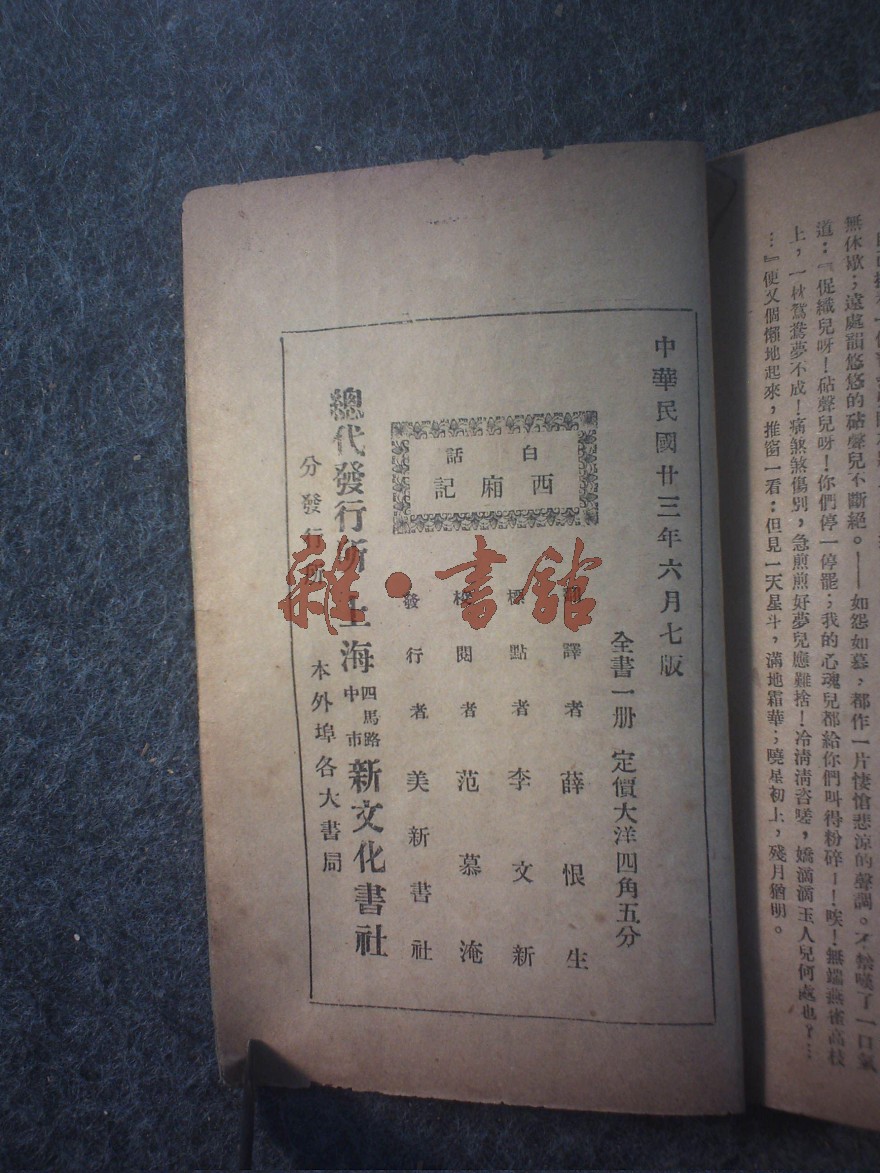 無休歇；遠處韻悠悠的砧聲兒不斷絕。——如怨如慕，都作一片悽愴悲涼的聲調。不禁嘆了一口氣
道：『促織兒呀！砧聲兒呀！你們停一停罷；我的心魂兒都給你們叫得粉碎！——唉！無端燕雀高枝
上，一枕鴛鴦夢不成！痛煞煞傷別，急煎煎好夢兒應難捨！冷清清咨嗟，嬌滴滴玉人兒何處也？…
…』便又個懶地起來，推窗一看：但見一天星斗，滿地霜華；曉星初上，殘月猶明。
中華民國廿三年六月七版
全書一册　定價大洋四角五分
白話
西廂記
譯者　薛恨生
標點者　李文新
校閱者　范慕淹
發行者　美新書社
總代發行所　上海四馬路中市新文化書社
分發行所　本外埠各大書局
雜·書館